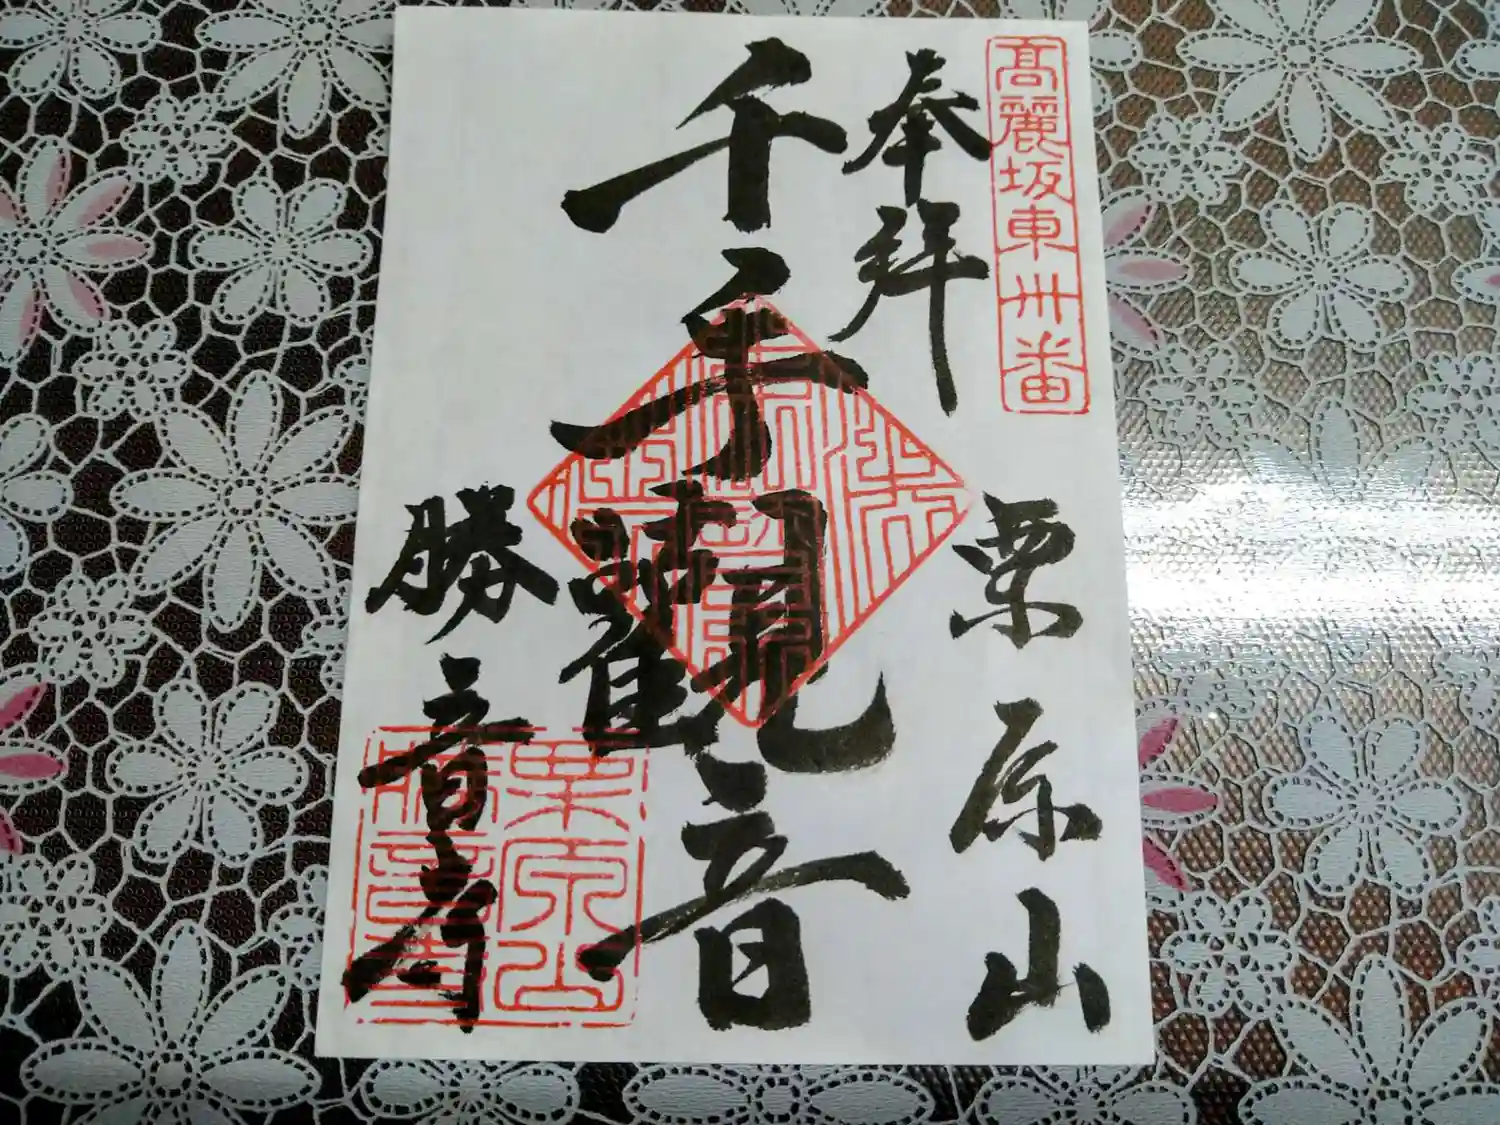 高麗坂東卅番
奉拝
栗原山
千手観音
勝音寺
栗原山
勝音寺